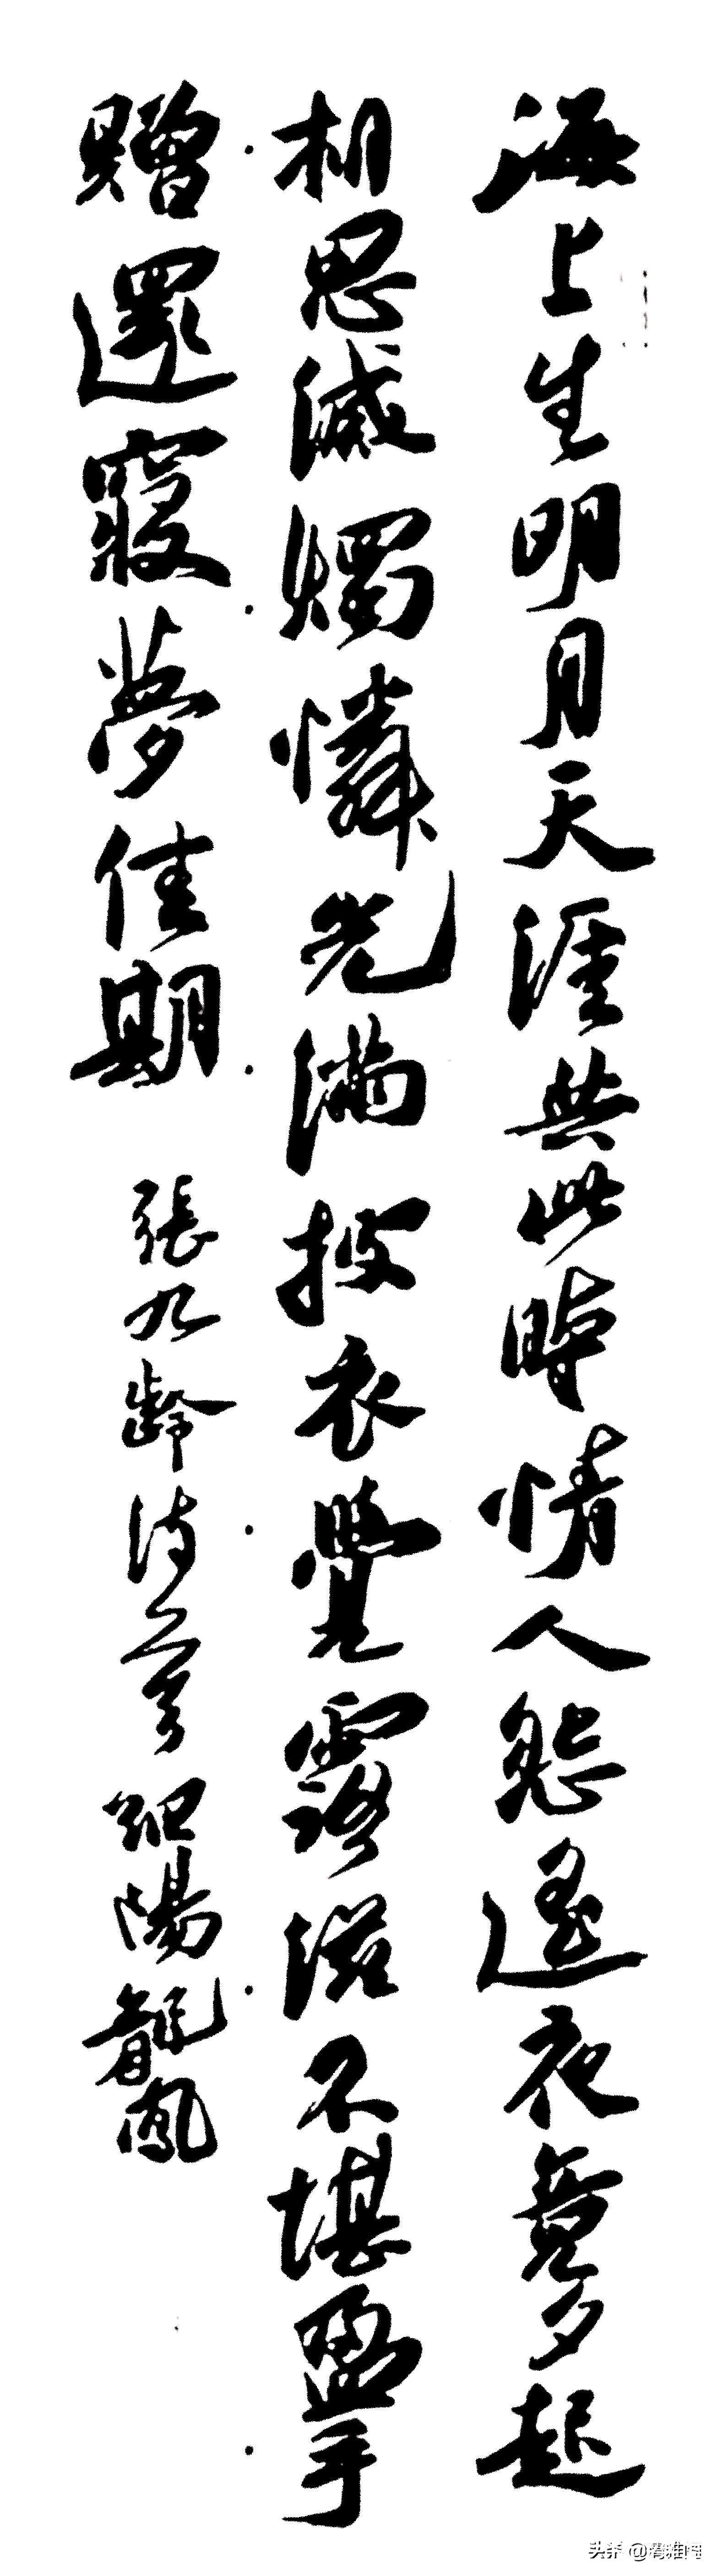 海上生明月天涯共此時情人怨遙夜竟夕起
相思滅燭憐光滿披衣覺露滋不堪盈手
贈還寢夢佳期 張九齡詩一首 歐陽龍鳳
头条 @